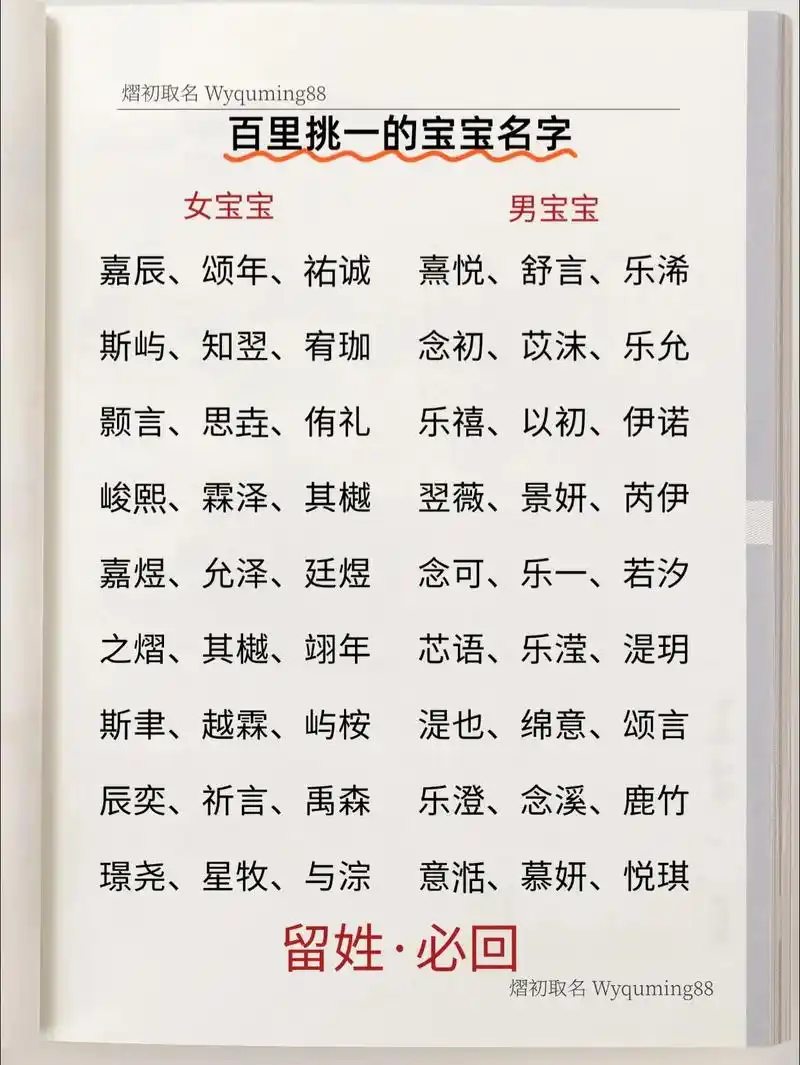 熠初取名 Wyquming88
百里挑一的宝宝名字
女宝宝 男宝宝
嘉辰、颂年、祐诚 熹悦、舒言、乐浠
斯屿、知翌、宥珈 念初、苡沫、乐允
颢言、思垚、侑礼 乐禧、以初、伊诺
峻熙、霖泽、其樾 翌薇、景妍、芮伊
嘉煜、允泽、廷煜 念可、乐一、若汐
之熠、其樾、翊年 芯语、乐滢、湜玥
斯聿、越霖、屿桉 湜也、绵意、颂言
辰奕、祈言、禹森 乐澄、念溪、鹿竹
璟尧、星牧、与淙 意湉、慕妍、悦琪
留姓·必回
熠初取名 Wyquming88